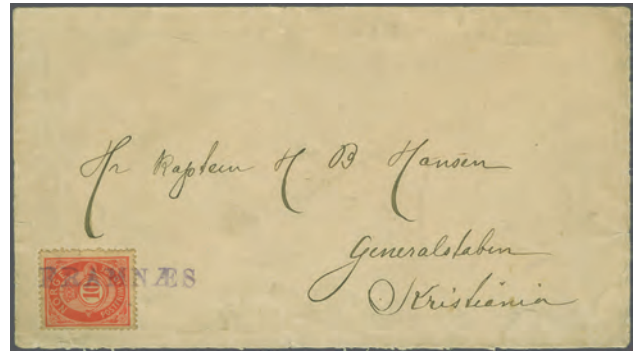 Hr Kaptein H B Hansen
Generalstaben
Kristiania
FRAMNÆS
10